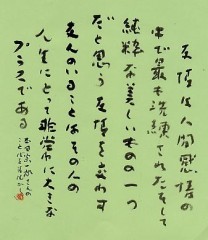 友情は人間感情の
中で最も洗練されたそして
純粋な美しいものの一つ
だと思う友情を交わす
友人のいることはその人の
人生にとって非常に大きな
プラスである